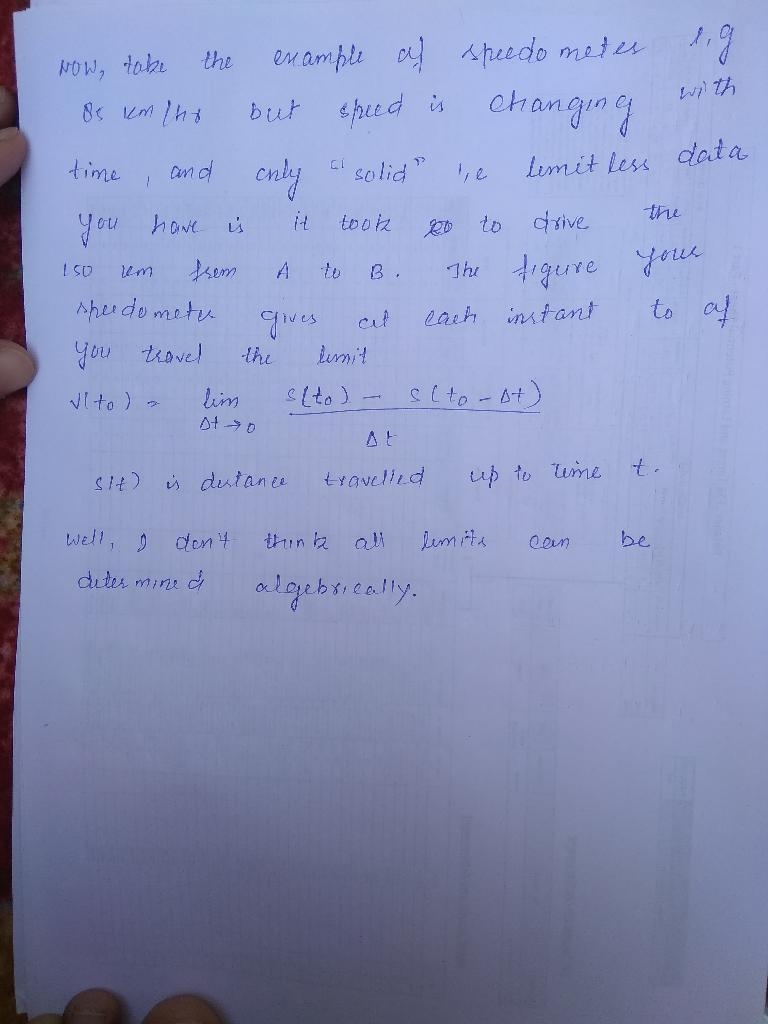 NOW, take the example of speedometer e.g
85 km/hr but speed is changing with
time, and only "solid" i,e limitless data
you have is it took to drive the
150 km from A to B. The figure your
speedometer gives at each instant to of
you travel the limit
V(to) = lim Δt→0 S(to) - S(to-Δt) / Δt
S(t) is distance travelled up to time t.
Well, I don't think all limits can be
determined algebrically.